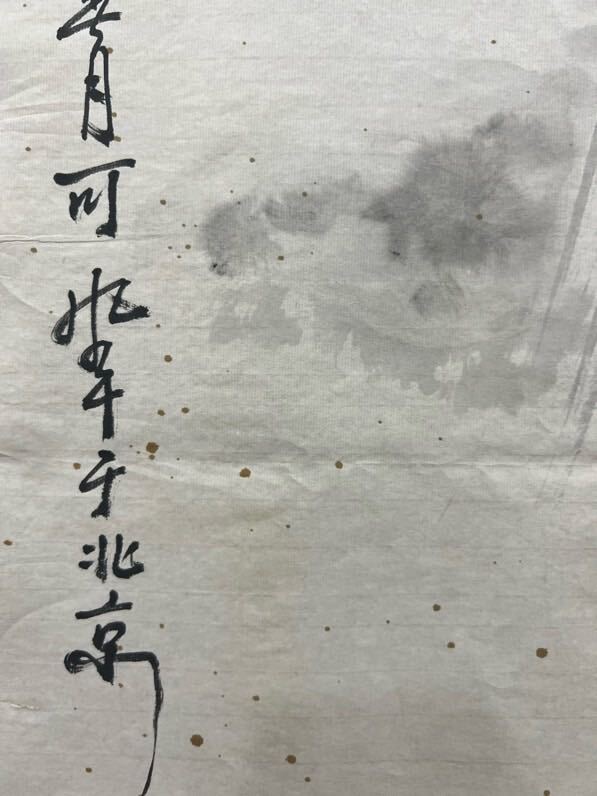 月可染于北京